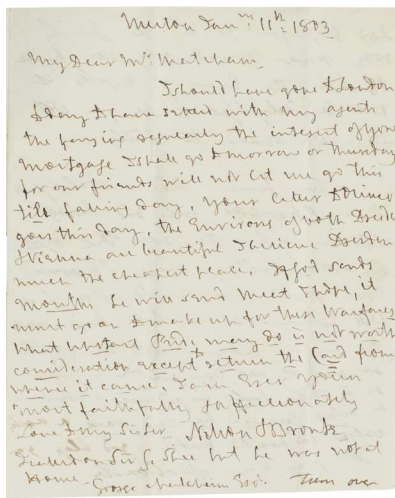 Merton Jany 11th 1803
My Dear Mr Matcham,
I should have gone to London
to day to have settled with my agent
the paying regularly the interest of your
Mortgage I shall go tomorrow or thursday
for our friends will not let me go this
day, your letter to
goes this day, the Environs of both Dresden
& Vienna are beautiful I believe Dresden
much the cheapest place.
he will send I hope, it
must go on to make up for these
what upstart Pride may do is not worth
consideration except to return the Card from
whence it came, I am Ever yours
most faithfully & affectionately
Love to my Sister Nelson & Bronte
Sir but he was not at
Home—
George Matcham Esqr. Turn over